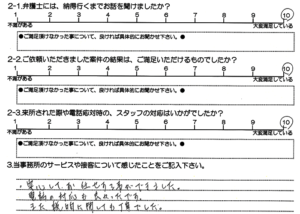 2-1.弁護士には、納得行くまでお話を聞けましたか?
1 2 3 4 5 6 7 8 9 10
不満がある 大変満足している
●ご満足頂けなかった事について、良ければ具体的にお聞かせ下さい。
2-2.ご依頼いただきました案件の結果は、ご満足いただけるものでしたか?
1 2 3 4 5 6 7 8 9 10
不満がある 大変満足している
●ご満足頂けなかった事について、良ければ具体的にお聞かせ下さい。
2-3.来所された際や電話応対時の、スタッフの対応はいかがでしたか?
1 2 3 4 5 6 7 8 9 10
不満がある 大変満足している
●ご満足頂けなかった事について、良ければ具体的にお聞かせ下さい。
3.当事務所のサービスや接客について感じたことをご記入下さい。
安心してお任せする事ができました。
電話の対応も
また に関しても丁寧でした。